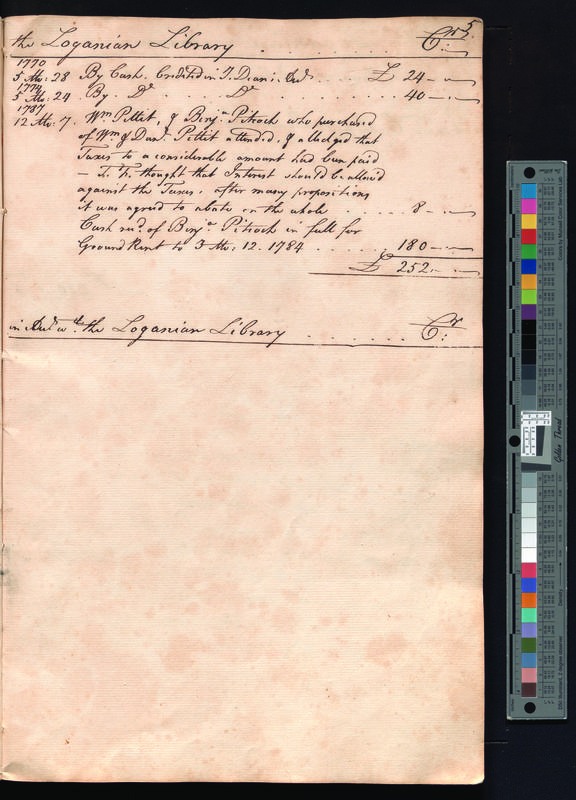 5
the Loganian Library . . . . . . . . Cr:
1770
5 Mo: 28 By Cash. Credited in T. Dean's Acct . . . . £ 24 — —
1774
5 Mo: 24. By Do. Do . . . . 40 — —
1787
12 Mo: 7. Wm Pettit, & Benja Pitroch who purchased
of Wm & Danl. Pettit attended, & alledged that
Taxes to a considerable amount had been paid
— thought that Interest should be allow'd
against the Taxes, after many propositions
it was agreed to abate on the whole . . . . . 8 — —
Cash recd of Benja Pitroch in full for
Ground Rent to 3 Mo. 12. 1784 . . . . . . 180 — —
£ 252 — —
in Acct wth. the Loganian Library . . . . . . . Cr: